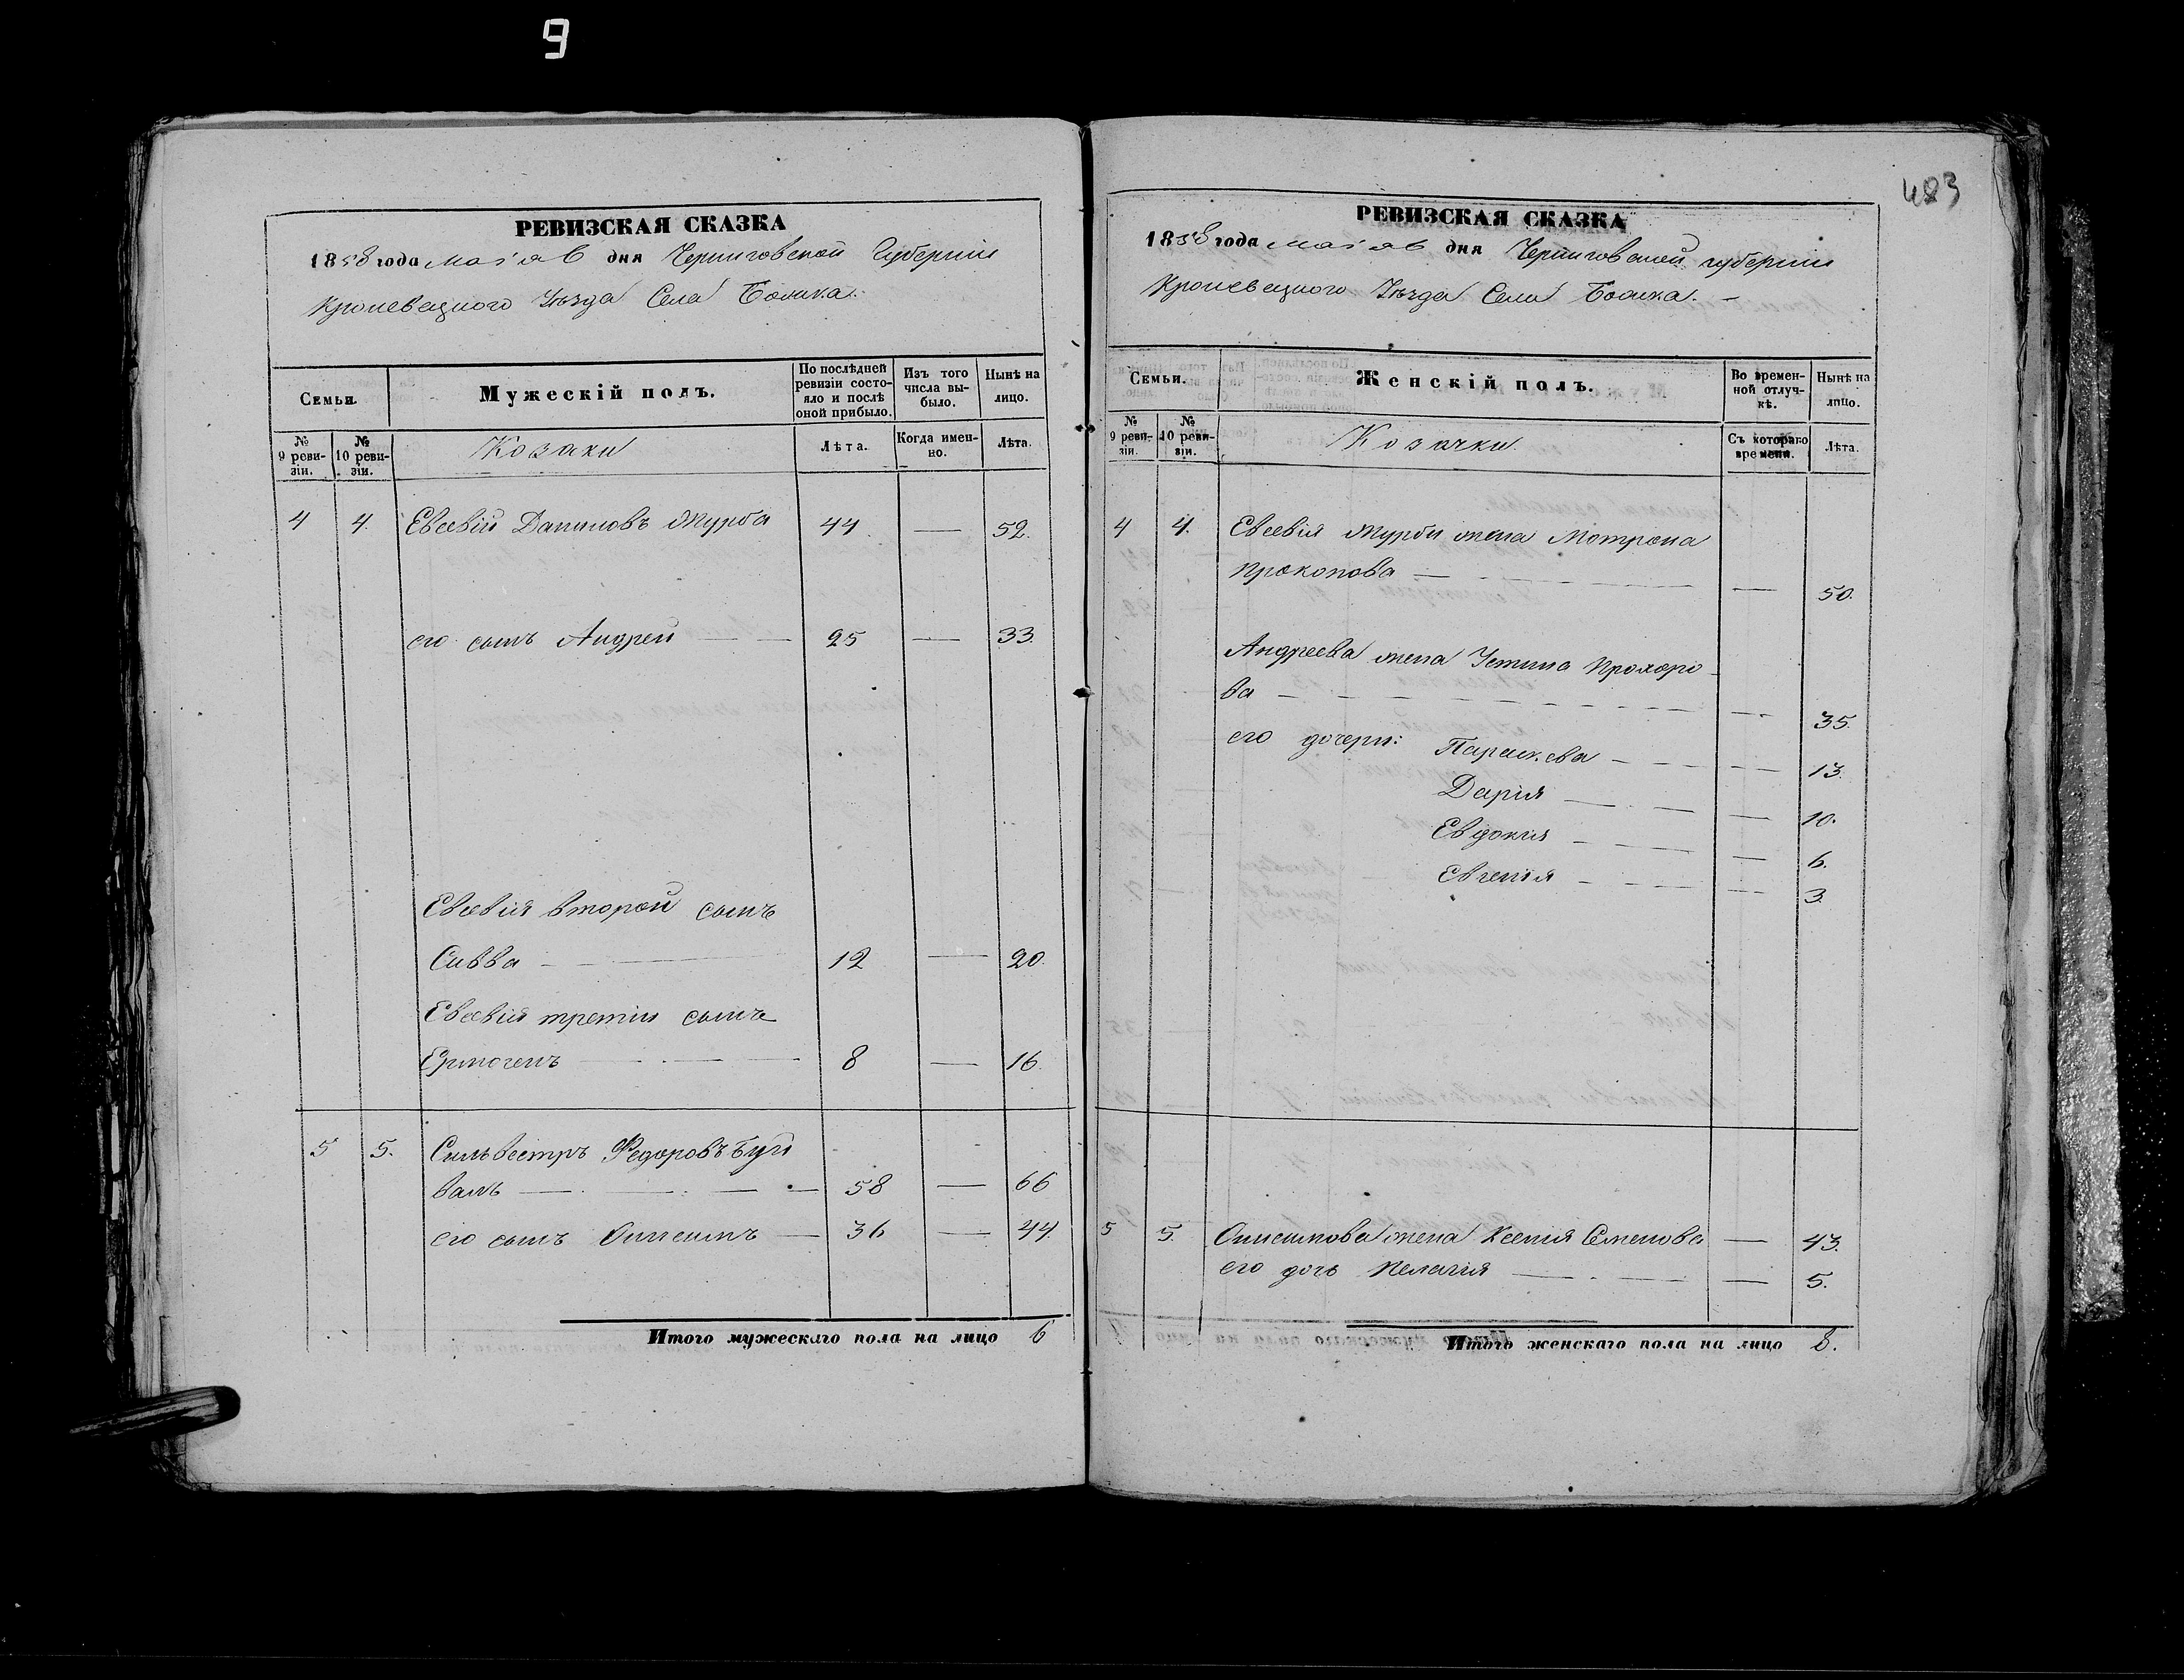 9
483
РЕВИЗСКАЯ СКАЗКА
1858 года маія 6 дня Черниговской Губерніи
Кролевецкого Уѣзда Села
Семьи.
Мужескій полъ.
По послѣдней ревизіи состояло и послѣ оной прибыло.
Изъ того числа выбыло.
Нынѣ на лицо.
№ 9 ревизіи.
№ 10 ревизіи.
Козаки
Лѣта.
Когда именно.
Лѣта.
4 4. Евсевій Даниловъ Журба 44 — 52.
его сынъ Андрей — — 25 — 33.
Евсевія второй сынъ
Савва — 12 — 20.
Евсевія третій сынъ
Ермогенъ — 8 — 16.
5 5. Сильвестръ Федоровъ Буй
валъ — 58 — 66
его сынъ Онисимъ — 36 — 44.
Итого мужескаго пола на лицо 6
РЕВИЗСКАЯ СКАЗКА
1858 года маія 6 дня Черниговской губерніи
Кролевецкого Уѣзда Села
Семьи.
Женскій полъ.
Во временной отлучкѣ.
Нынѣ на лицо.
№ 9 ревизіи.
№ 10 ревизіи.
Козачки.
Съ котораго времени.
Лѣта.
4 4. Евсевія Журбы жена Мотрона
Прокопова — — 50.
Андреева жена Устина Прохоро
ва — — 35.
его дочери: Параскева — — 13.
Дарія — — 10.
Евдокия — — 6.
Евгенія — — 3.
5 5. Онисимова жена Ксенія Семенова — 43.
его дочь Пелагія — — 5.
Итого женскаго пола на лицо 8.